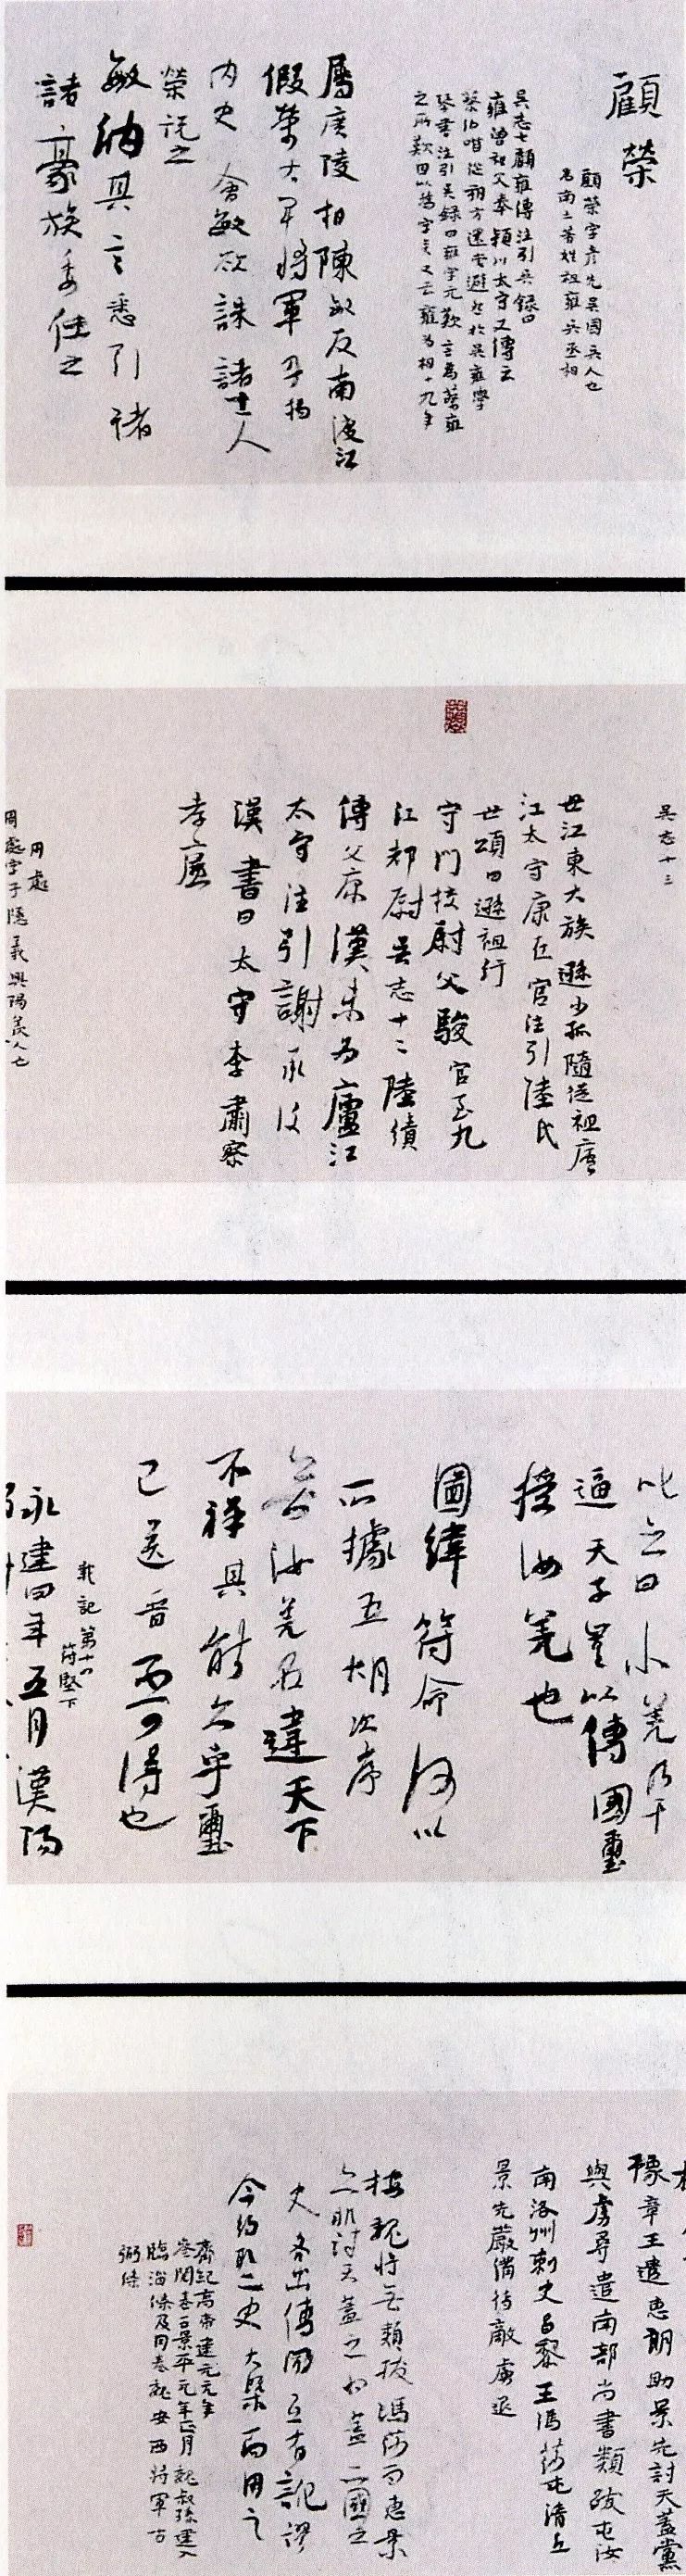 顧榮
顧榮字彥先吳國吳人也
為南土著姓祖雍吳丞相
吳志七顧雍傳注引吳録曰
雍曾祖父奉潁川太守又傳云
蔡伯喈從朔方還嘗避怨於吳雍學
琴書注引吳録曰雍字元歎言為蔡雍
之所歎因以為字焉又云雍為相十九年
屬廣陵相陳敏反南渡江
假榮右軍將軍丹楊
內史會敏欲誅諸士人
榮說之
敏納其言悉引諸
諸豪族委任之
吳志十三
世江東大族遜少孤隨從祖廬
江太守康在官注引陸氏
世頌曰遜祖紆
守門校尉父駿官至九
江都尉吳志十二陸績
傳父康漢末為廬江
太守注引謝承後
漢書曰太守李肅察
孝廉
周處
周處字子隱義興陽羨人也
叱之曰小羌乃干
逼天子豈以傳國璽
授汝羌也
圖緯符命何以
所據五胡次序
無汝羌名違天下
不祥其能久乎璽
已送晉不可得也
載記第十四
苻堅下
永建四年五月漢陽
豫章王遣惠朗助景先討天蓋黨
與虜尋遣南部尚書類跋屯汝
南洛州刺史昌黎王馮莎屯清丘
景先嚴備待敵虜退
按魏將無類拔馮莎而惠景
亦朗討天蓋之也蓋二國之
史各出傳聞互有訛謬
今約取二史大槩而用之
齊紀高帝建元元年
卷同卷景平元年正月魏叔孫建入
臨淄條及同卷魏安西將軍古
弼條